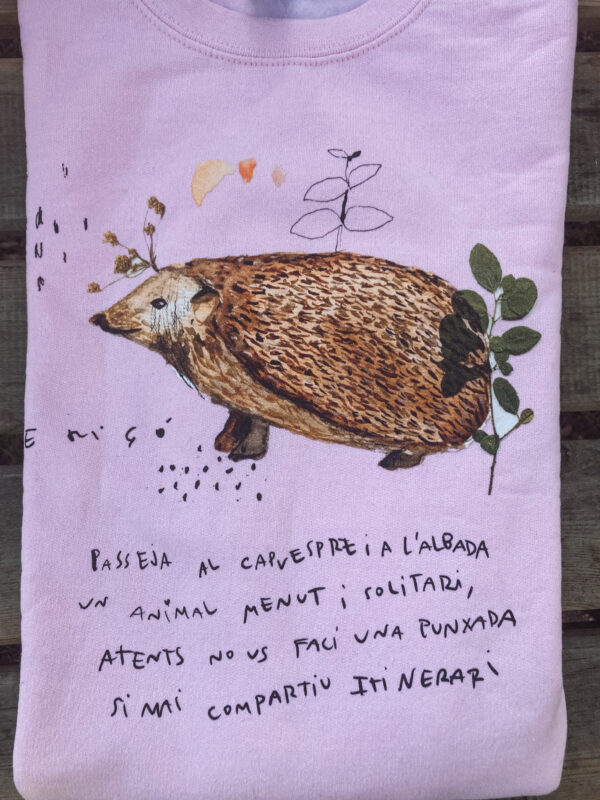 E RIÇÓ
PASSEJA AL CAPVESPRE I A L'ALBADA
UN ANIMAL MENUT I SOLITARI,
ATENTS NO US FACI UNA PUNXADA
SI MAI COMPARTIU ITINERARI